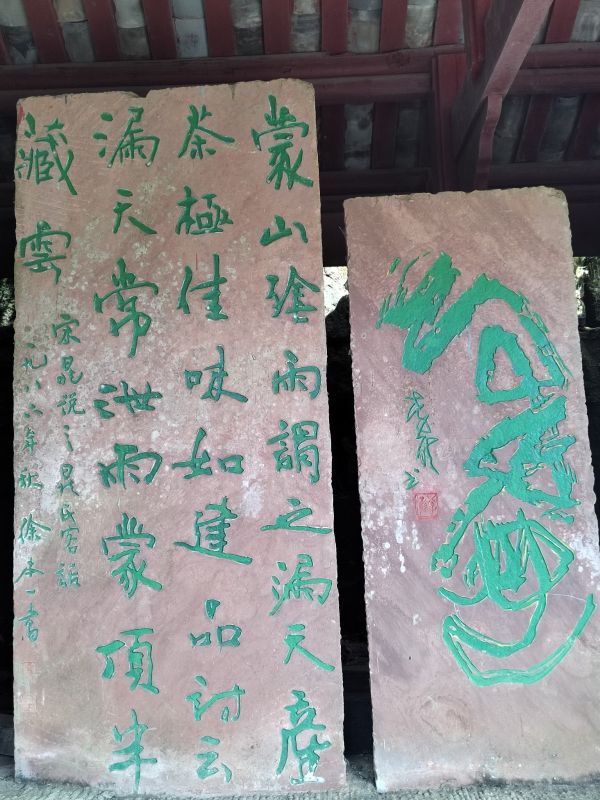 蒙山陰雨謂之漏天產
茶極佳味如建品詩云
漏天常泄雨蒙頂半
藏雲
宋晁説之晁氏客語
一九八六年秋 徐本一書